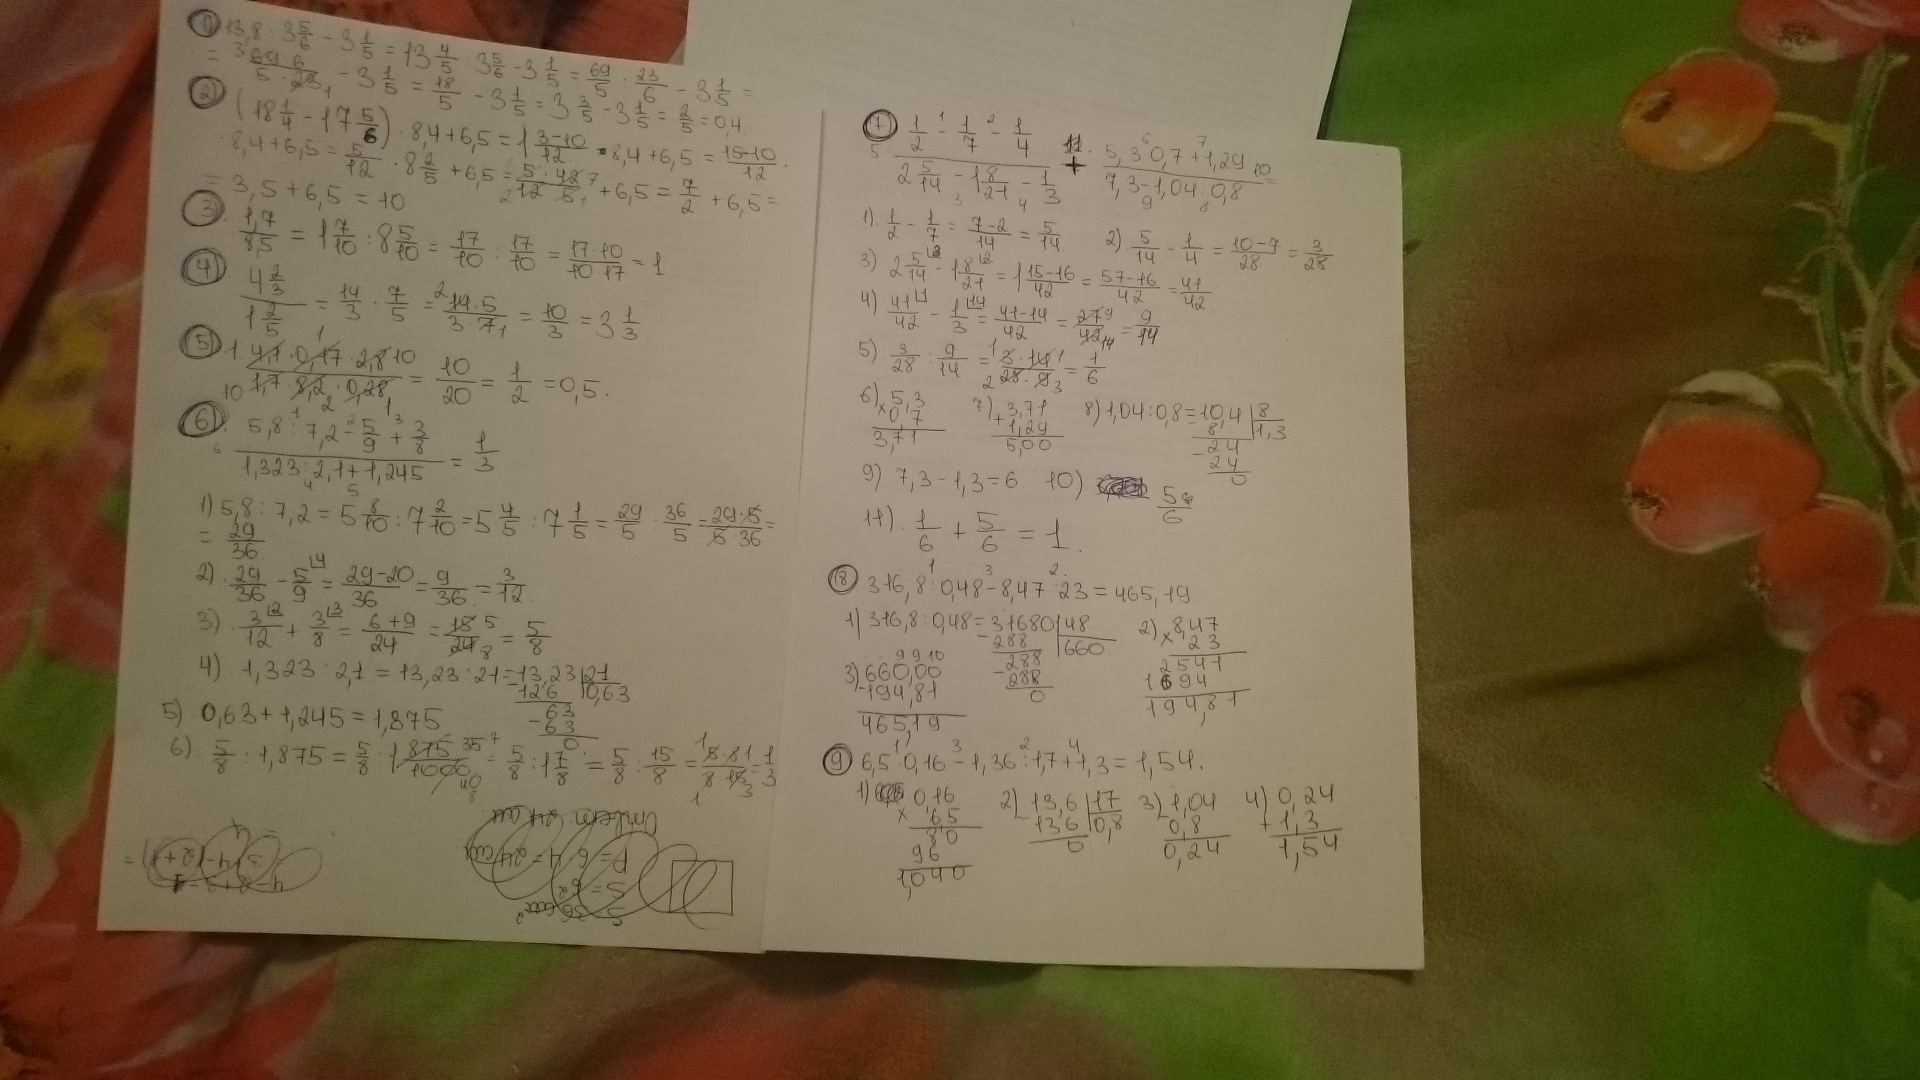 ① 13,8 : 3 5/6 - 3 1/5 = 13 4/5 : 3 5/6 - 3 1/5 = 69/5 : 23/6 - 3 1/5 =
= 69·6/5·23 - 3 1/5 = 18/5 - 3 1/5 = 3 3/5 - 3 1/5 = 2/5 = 0,4.
② (18 1/4 - 17 5/6) · 8,4 + 6,5 = 1 3-10/12 · 8,4 + 6,5 = 15-10/12 ·
· 8,4 + 6,5 = 5/12 · 8 2/5 + 6,5 = 5·42/12·5 + 6,5 = 7/2 + 6,5 =
= 3,5 + 6,5 = 10
③ 1,7/8,5 = 1 7/10 : 8 5/10 = 17/10 : 17/10 = 17·10/10·17 = 1
④ 4 2/3 / 1 2/5 = 14/3 · 7/5 = 14·5/3·7 = 10/3 = 3 1/3
⑤ 4,1 · 0,17 · 2,8 / 1,7 · 8,2 · 0,28 = 10/20 = 1/2 = 0,5.
⑥ 5,8 : 7,2 - 5/9 + 3/8 / 1,323 : 2,1 + 1,245 = 1/3
1) 5,8 : 7,2 = 5 8/10 : 7 2/10 = 5 4/5 : 7 1/5 = 29/5 : 36/5 = 29·5/5·36 =
= 29/36
2) 29/36 - 5/9 = 29-20/36 = 9/36 = 3/12.
3) 3/12 + 3/8 = 6+9/24 = 15/24 = 5/8
4) 1,323 : 2,1 = 13,23 : 21 = 13,23 | 21
-126 0,63
63
-63
0
5) 0,63 + 1,245 = 1,875
6) 5/8 : 1,875 = 5/8 : 1 875/1000 = 5/8 : 1 7/8 = 5/8 : 15/8 = 5·81/8·15 = 1/3
S = 6²
P = 6·4 = 24 см
⑦ 1/2 - 1/7 - 1/4 / 2 5/14 - 1 8/21 - 1/3 + 5,3·0,7 + 1,29 / 7,3 - 1,04 : 0,8 =
1) 1/2 - 1/7 = 7-2/14 = 5/14 2) 5/14 - 1/4 = 10-7/28 = 3/28
3) 2 5/14 - 1 8/21 = 1 15-16/42 = 57-16/42 = 41/42
4) 41/42 - 1/3 = 41-14/42 = 27/42 = 9/14
5) 3/28 : 9/14 = 3·14/28·9 = 1/6
6) 5,3 7) 3,71 8) 1,04 : 0,8 = 10,4 | 8
× 0,7 + 1,29 8 1,3
3,71 5,00 -24
24
0
9) 7,3 - 1,3 = 6 10) 5/6
11) 1/6 + 5/6 = 1.
⑧ 316,8 : 0,48 - 8,47 · 23 = 465,19
1) 316,8 : 0,48 = 31680 | 48 2) 8,47
-288 660. × 23
288 2541
-288 1694
0 194,81
3) 660,00
-194,81
465,19
⑨ 6,5 · 0,16 - 1,36 : 1,7 + 1,3 = 1,54.
1) 0,16 2) 13,6 | 17 3) 1,04 4) 0,24
× 65 13 6 0,8 0,8 + 1,3
80 0 0,24 1,54
96
1,040